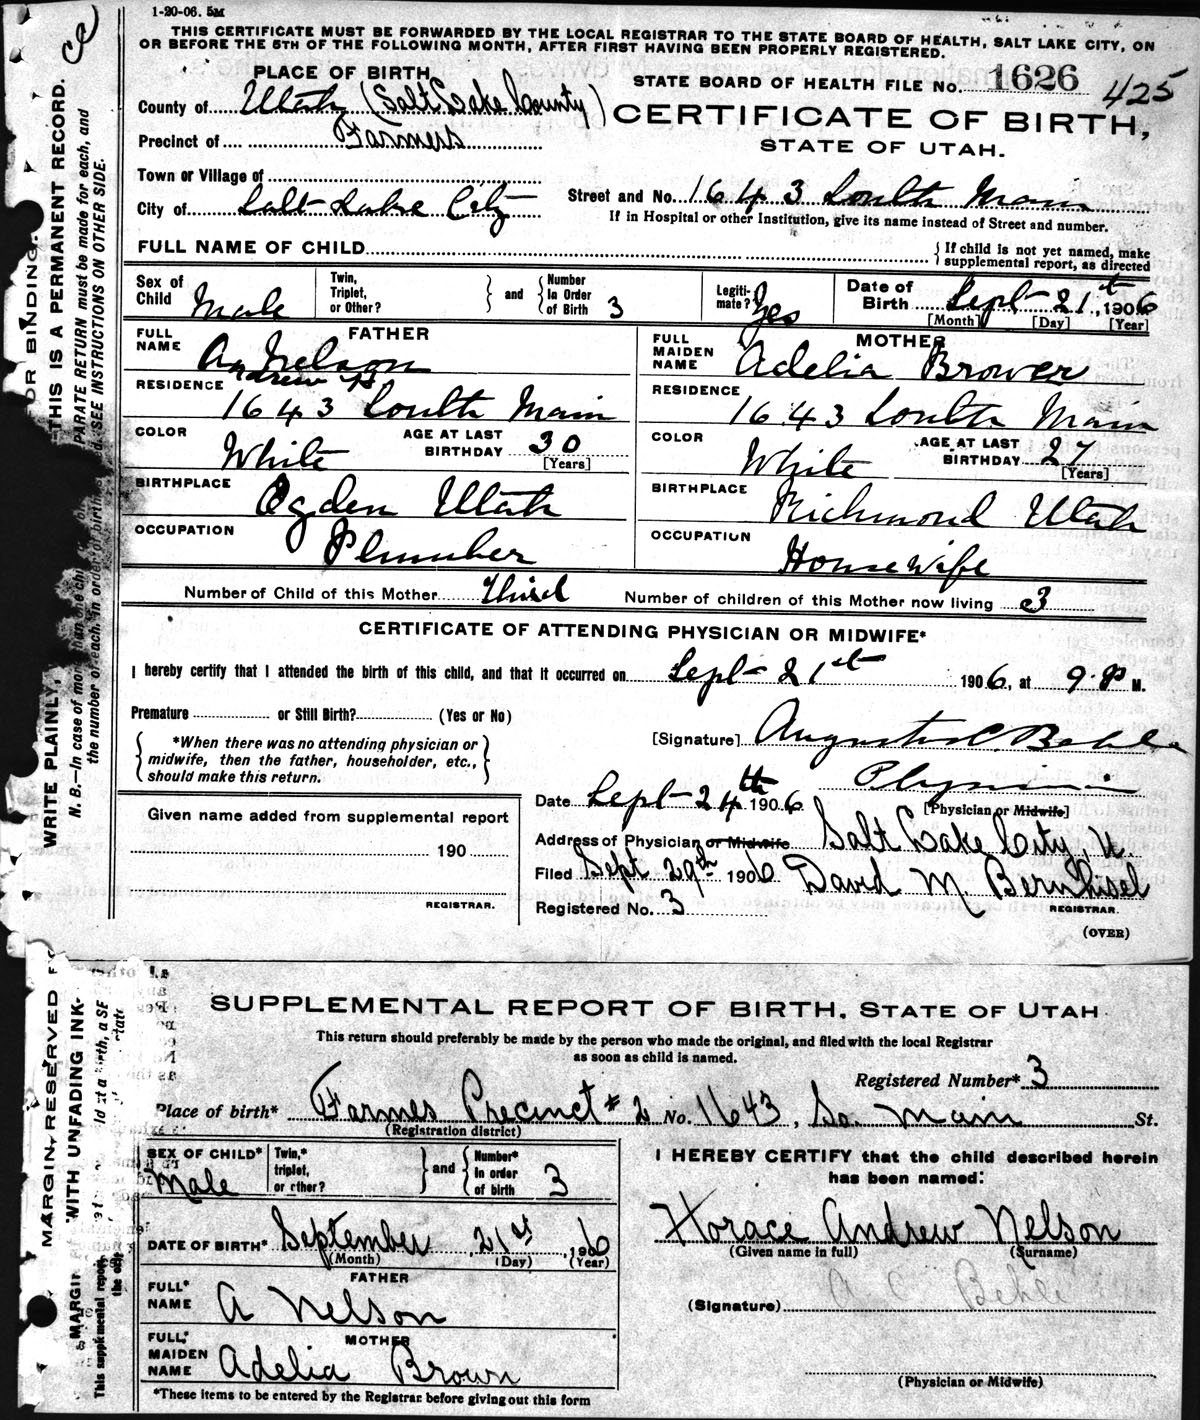 1-20-06. 5M
THIS CERTIFICATE MUST BE FORWARDED BY THE LOCAL REGISTRAR TO THE STATE BOARD OF HEALTH, SALT LAKE CITY, ON
OR BEFORE THE 5TH OF THE FOLLOWING MONTH, AFTER FIRST HAVING BEEN PROPERLY REGISTERED.
PLACE OF BIRTH
STATE BOARD OF HEALTH FILE No. 1626 425
County of Utah (Salt Lake County)
CERTIFICATE OF BIRTH,
Precinct of Farmers
STATE OF UTAH.
Town or Village of
City of Salt Lake City
Street and No. 1643 South Main
If in Hospital or other Institution, give its name instead of Street and number.
FULL NAME OF CHILD
{If child is not yet named, make
supplemental report, as directed
Sex of Child Male
Twin, Triplet, or Other?
and
Number In Order of Birth 3
Legitimate? Yes
Date of Birth Sept 21st, 1906
[Month] [Day] [Year]
FATHER
FULL NAME A. Nelson
Andrew
MOTHER
FULL MAIDEN NAME Adelia Brower
RESIDENCE 1643 South Main
RESIDENCE 1643 South Main
COLOR White AGE AT LAST BIRTHDAY 30 [Years]
COLOR White AGE AT LAST BIRTHDAY 27 [Years]
BIRTHPLACE Ogden Utah
BIRTHPLACE Richmond Utah
OCCUPATION Plumber
OCCUPATION Housewife
Number of Child of this Mother Third Number of children of this Mother now living 3
CERTIFICATE OF ATTENDING PHYSICIAN OR MIDWIFE*
I hereby certify that I attended the birth of this child, and that it occurred on Sept 21st 1906, at 9 P M.
Premature or Still Birth? (Yes or No)
*When there was no attending physician or
midwife, then the father, householder, etc.,
should make this return.
[Signature] Augustus C. Behle
Physician
Date Sept 24th 1906 [Physician or Midwife]
Given name added from supplemental report
190
REGISTRAR.
Address of Physician or Midwife Salt Lake City, U.
Filed Sept 29th 1906 David M. Bernhisel
REGISTRAR.
Registered No. 3
(OVER)
FOR BINDING.
THIS IS A PERMANENT RECORD.
PARATE RETURN must be made for each, and
SEE INSTRUCTIONS ON OTHER SIDE.
WRITE PLAINLY,
N. B.—In case of more than one chi
the number of each, in order of birth
SUPPLEMENTAL REPORT OF BIRTH, STATE OF UTAH
This return should preferably be made by the person who made the original, and filed with the local Registrar
as soon as child is named.
Registered Number* 3
Place of birth* Farmes Precinct #2 No. 1643, So. Main St.
(Registration district)
SEX OF CHILD* Male
Twin,* triplet, or other?
and
Number* in order of birth 3
I HEREBY CERTIFY that the child described herein
has been named:
Horace Andrew Nelson
(Given name in full) (Surname)
DATE OF BIRTH* September 21st, 1906
(Month) (Day) (Year)
FATHER
FULL* NAME A Nelson
(Signature) A C Behle
MOTHER
FULL* MAIDEN NAME Adelia Brown
(Physician or Midwife)
*These items to be entered by the Registrar before giving out this form
MARGIN RESERVED FO
WITH UNFADING INK
This supplemental report,